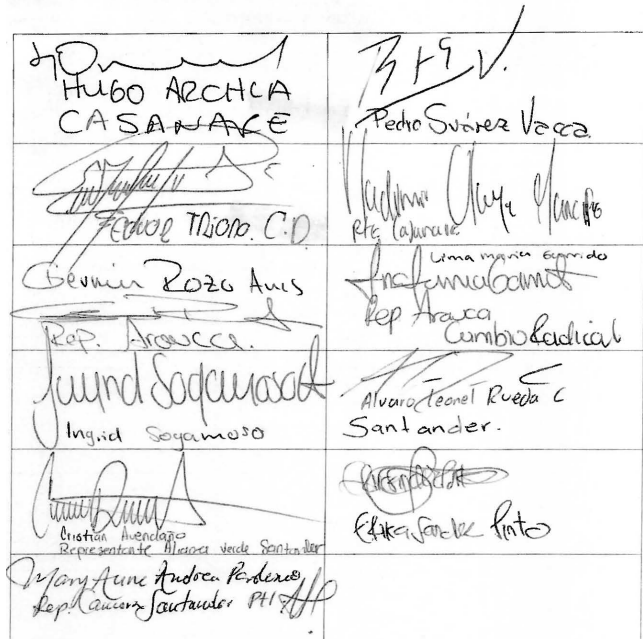 HUGO ARCHLA
CASANARE
Pedro Suárez Vacca
TRiana. C.D
Rte Casanare
Germán Rozo Anis
Rep. Arauca.
Lina maria Garrido
Rep Arauca
Cambio Radical
Ingrid Sogamoso
Ingrid Sogamoso
Alvaro Leonel Rueda C
Santander.
Cristian Avendaño
Representante Alianza Verde Santander
Erika Sanchez Pinto
Mary Anne Andrea Perdomo
Rep. Camara Santander PH